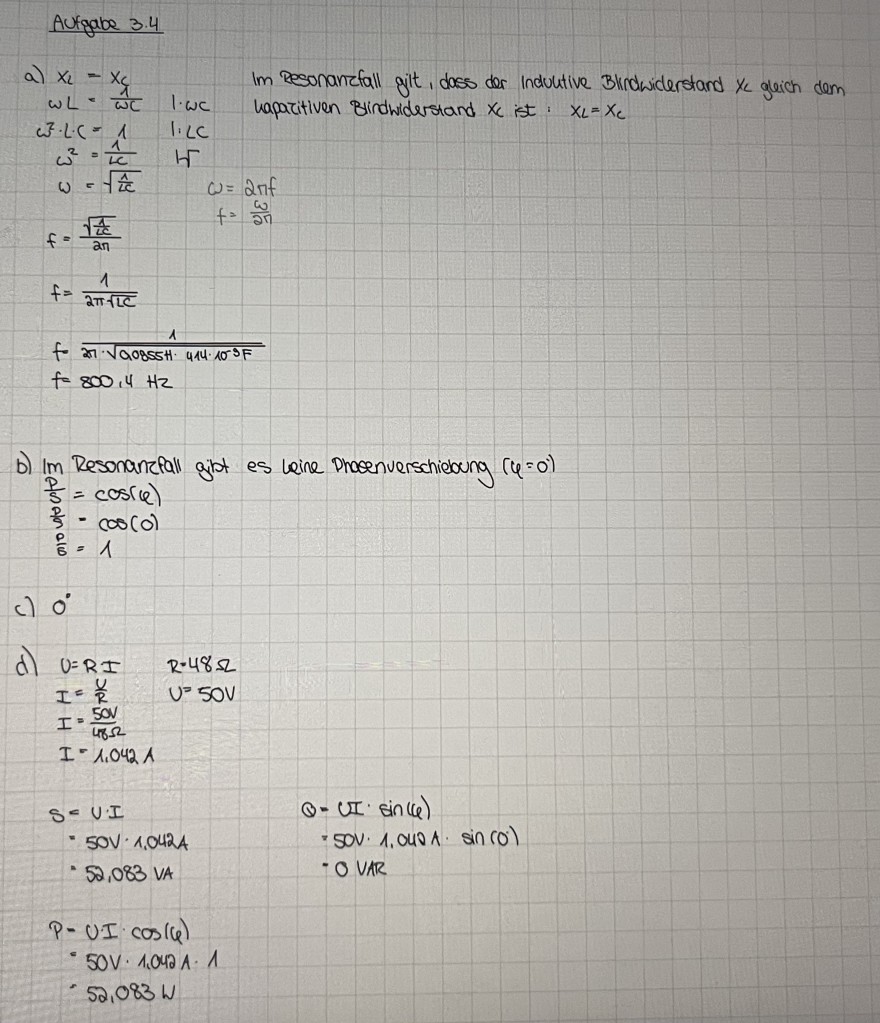 Aufgabe 3.4
a) XL = XC
Im Resonanzfall gilt, dass der Induktive Blindwiderstand XL gleich dem
ωL = 1/ωC |·ωC
kapazitiven Blindwiderstand XC ist : XL = XC
ω²·L·C = 1 |:LC
ω² = 1/LC |√
ω = √(1/LC)
ω = 2πf
f = ω/2π
f = √(1/LC)/2π
f = 1/(2π√LC)
f = 1/(2π·√(0,0955H · 414·10⁻⁹F))
f = 800,4 Hz
b) Im Resonanzfall gibt es keine Phasenverschiebung (φ=0°)
P/S = cos(φ)
P/S = cos(0)
P/S = 1
c) 0°
d) U = R I R = 48Ω
I = U/R U = 50V
I = 50V/48Ω
I = 1,042 A
S = U·I
= 50V · 1,042A
= 52,083 VA
Q = UI · sin(φ)
= 50V · 1,042 A · sin(0°)
= 0 VAR
P = U·I · cos(φ)
= 50V · 1,042 A · 1
= 52,083 W